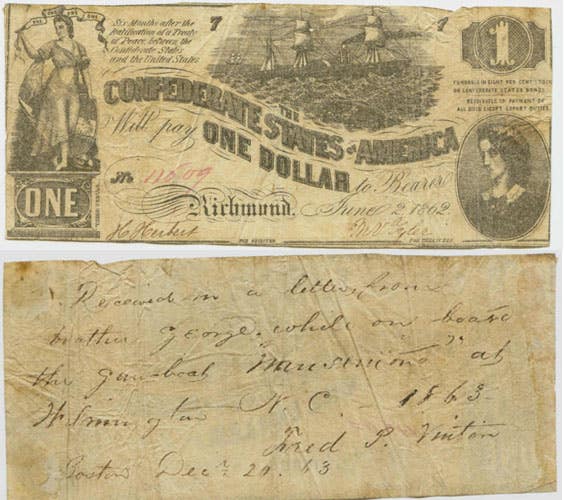 ONE ONE ONE ONE
Six Months after the
Ratification of a Treaty
of Peace, between the
Confederate States
and the United States
7 7
1
FUNDABLE IN EIGHT PER CENT STOCK
OR CONFEDERATE STATES BONDS.
RECEIVABLE IN PAYMENT OF
ALL DUES EXCEPT EXPORT DUTIES.
THE
CONFEDERATE STATES OF AMERICA
Will pay ONE DOLLAR to Bearer
No. 11009
ONE
Richmond, June 2, 1862
H Herbert
FOR REGISTER
FOR TREASURER
Received in a letter from
brother George while on board
the gun-boat at
Wilmington N. C. - 1863-
Fred P. Vinton
Boston Dec. 20. 63